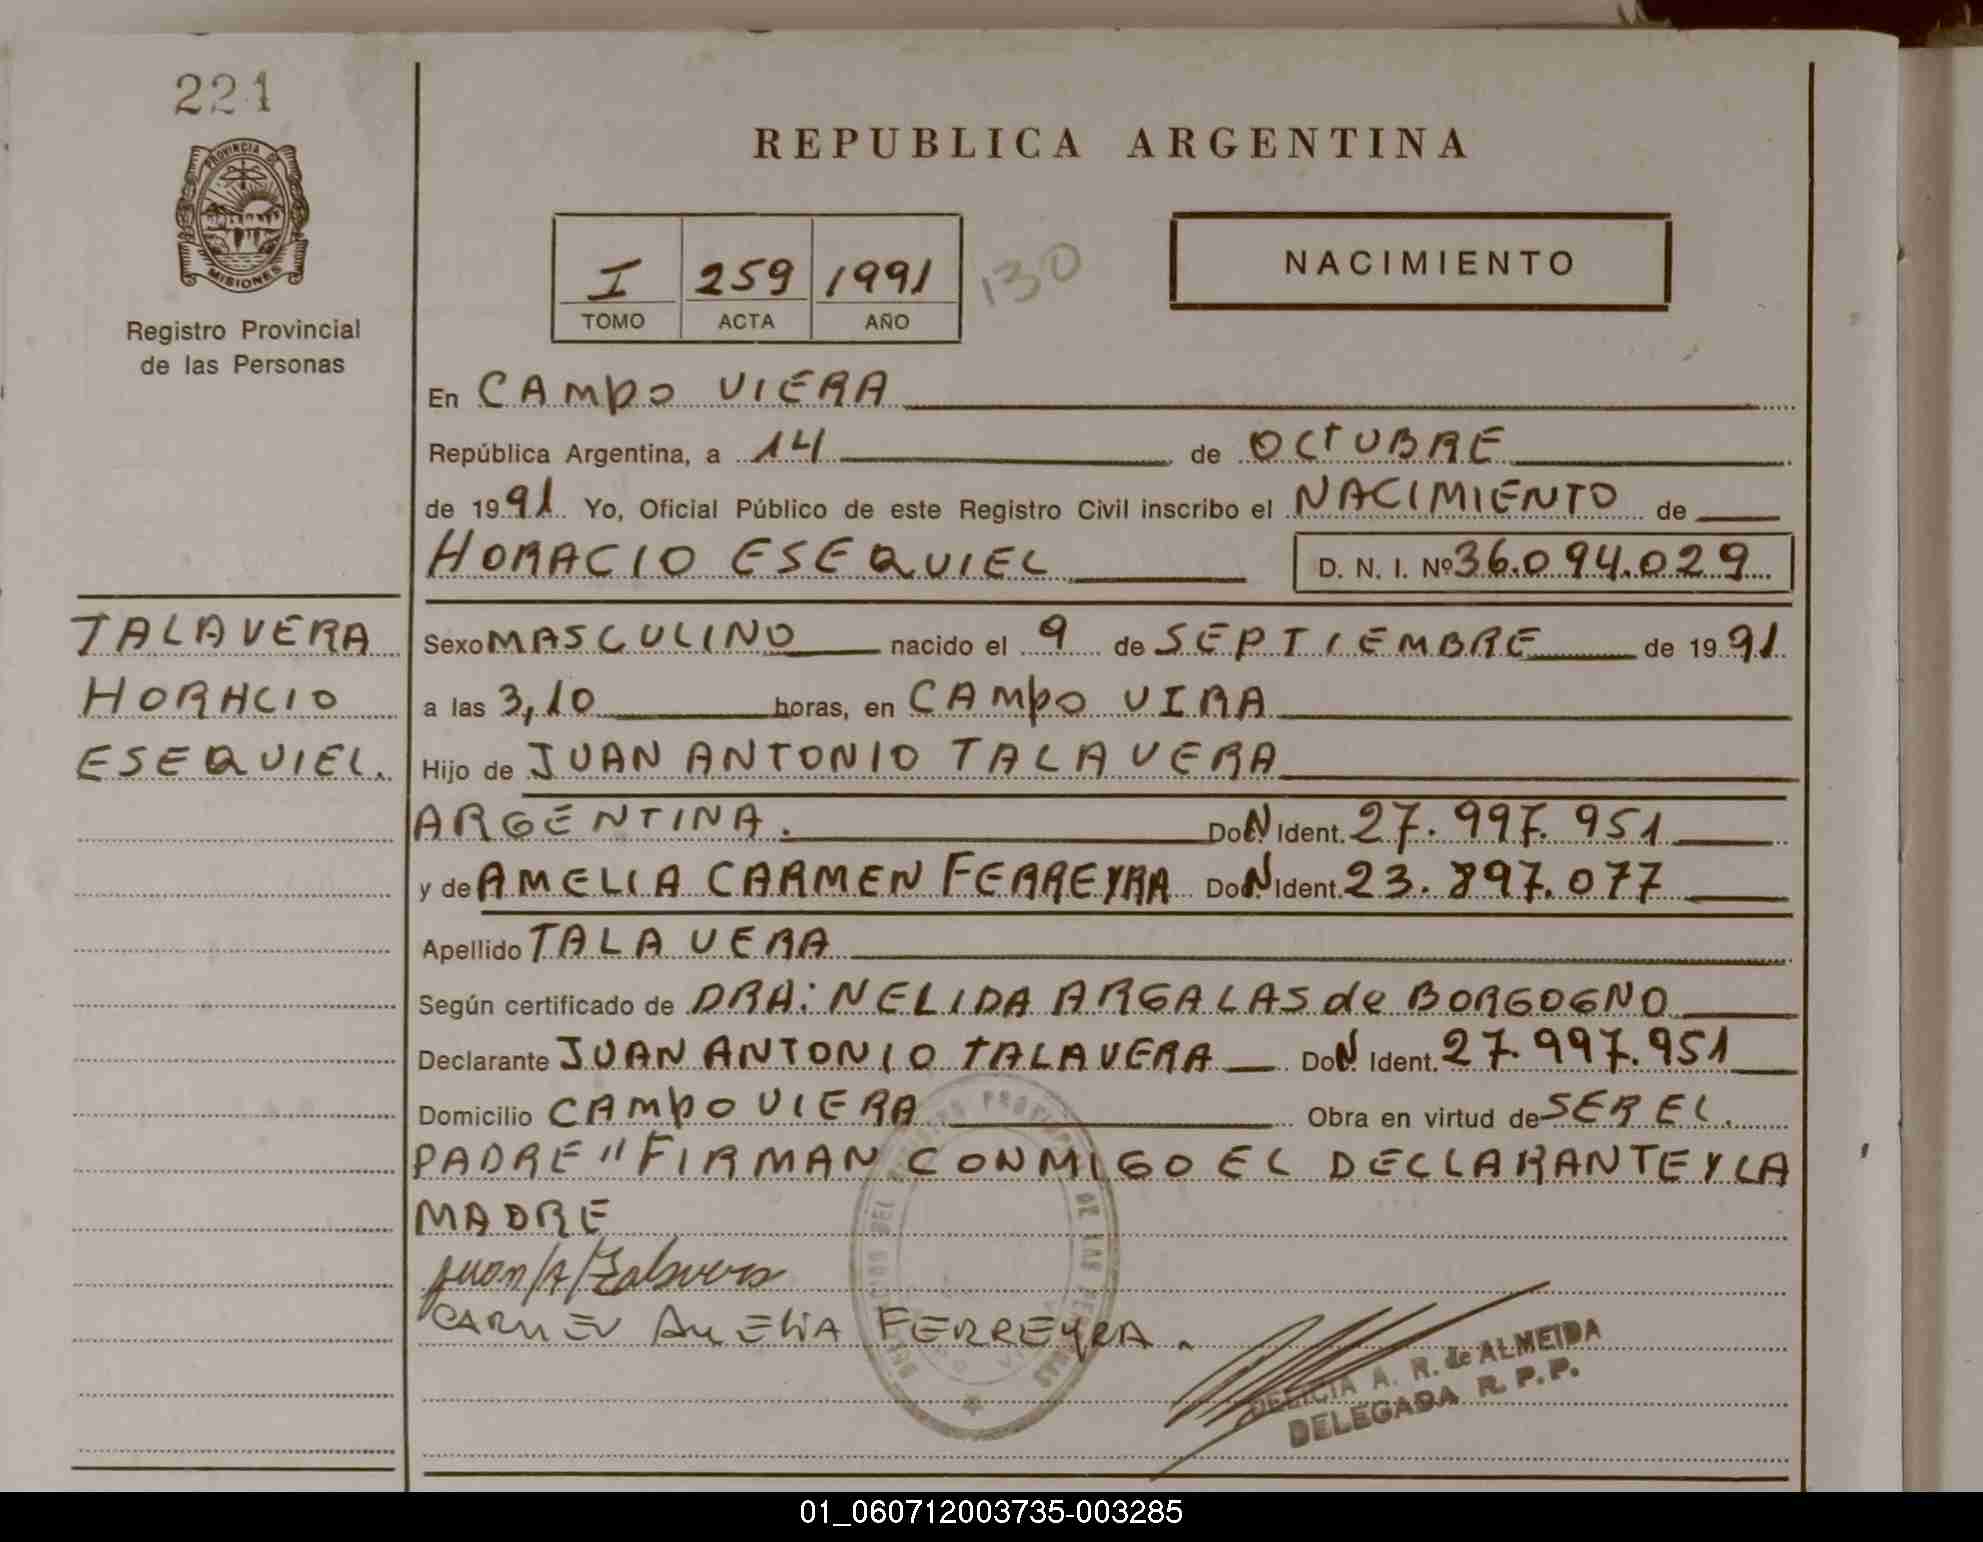 221
PROVINCIA DE
MISIONES
Registro Provincial
de las Personas
TALAVERA
HORACIO
ESEQUIEL.
REPUBLICA ARGENTINA
I 259 1991
TOMO ACTA AÑO
130
NACIMIENTO
En CAMPO VIERA
República Argentina, a 14 de OCTUBRE
de 1991 Yo, Oficial Público de este Registro Civil inscribo el NACIMIENTO de
HORACIO ESEQUIEL D. N. I. Nº 36.094.029
Sexo MASCULINO nacido el 9 de SEPTIEMBRE de 1991
a las 3,10 horas, en CAMPO VIRA
Hijo de JUAN ANTONIO TALAVERA
ARGENTINA. Do.N. Ident. 27.997.951
y de AMELIA CARMEN FERREYRA Do.N. Ident. 23.897.077
Apellido TALAVERA
Según certificado de DRA: NELIDA ARGALAS de BORGOGNO
Declarante JUAN ANTONIO TALAVERA Do.N. Ident. 27.997.951
Domicilio CAMPO VIERA Obra en virtud de SER EL.
PADRE" FIRMAN CONMIGO EL DECLARANTE Y LA
MADRE
juan/A/Talavera
CARMEN AMELIA FERREYRA.
DELICIA A. R. de ALMEIDA
DELEGADA R. P. P.
01_060712003735-003285